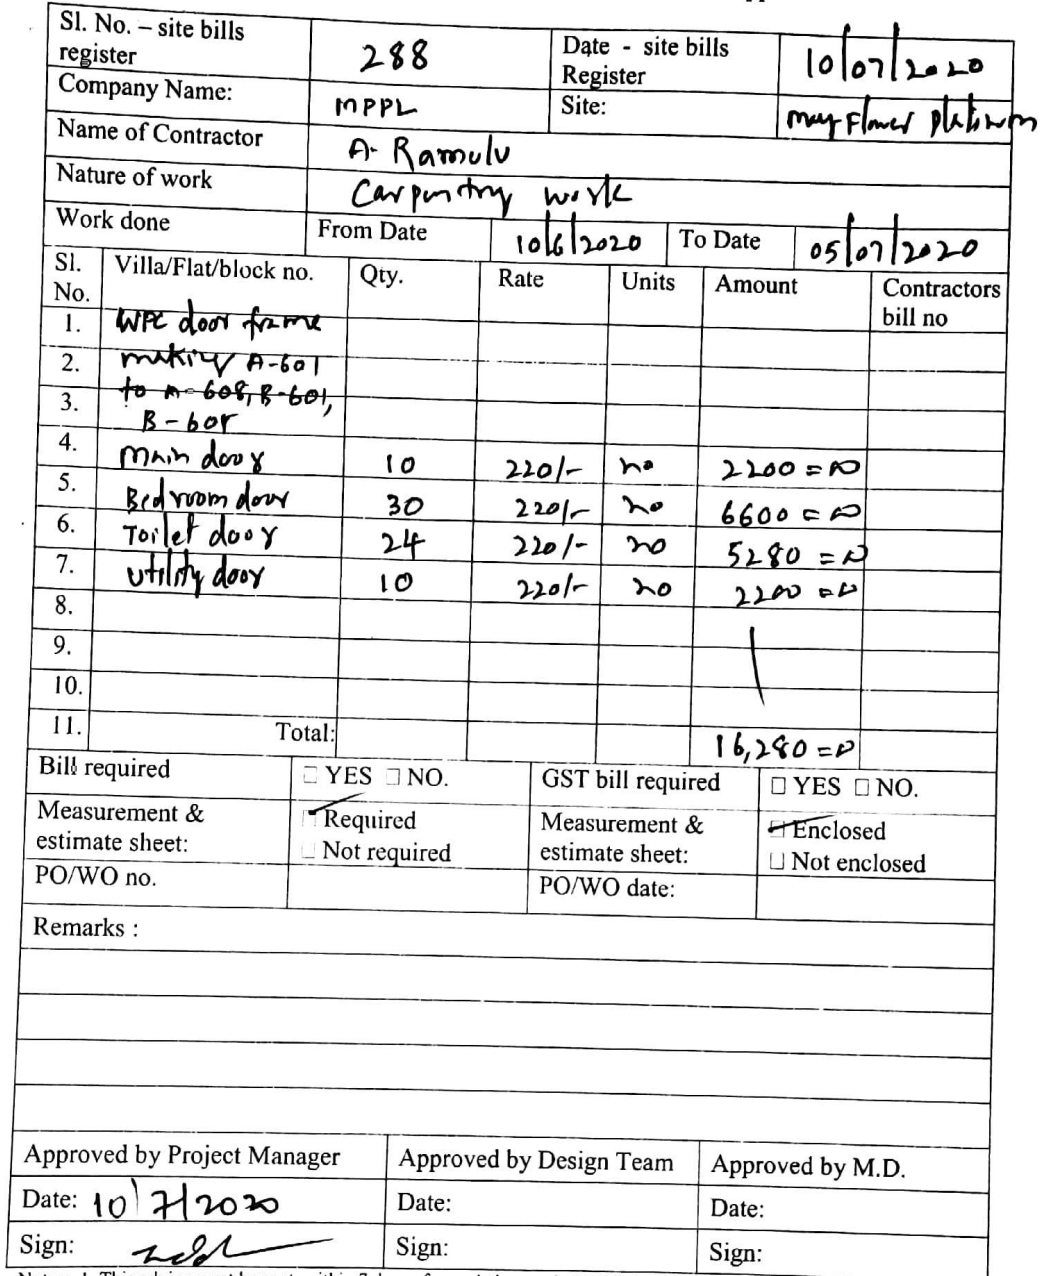 Sl. No. – site bills register 288 Date - site bills Register 10/07/2020
Company Name: MPPL Site: may Flower platinum
Name of Contractor A. Ramulu
Nature of work Carpentry work
Work done From Date 10/6/2020 To Date 05/07/2020
Sl. No. Villa/Flat/block no. Qty. Rate Units Amount Contractors bill no
1. WPC door frame
2. making A-601
3. to A-608, B-601,
B-605
4. Main door 10 220/- no 2200=00
5. Bedroom door 30 220/- no 6600=00
6. Toilet door 24 220/- no 5280=00
7. Utility door 10 220/- no 2200=00
8.
9.
10.
11. Total: 16,280=00
Bill required □ YES □ NO. GST bill required □ YES □ NO.
Measurement & estimate sheet: □ Required □ Not required Measurement & estimate sheet: □ Enclosed □ Not enclosed
PO/WO no. PO/WO date:
Remarks :
Approved by Project Manager Approved by Design Team Approved by M.D.
Date: 10/7/2020 Date: Date:
Sign: Sign: Sign: